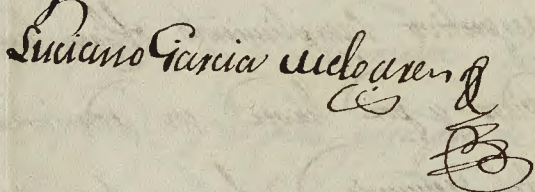 Luciano Garcia Melgarejo